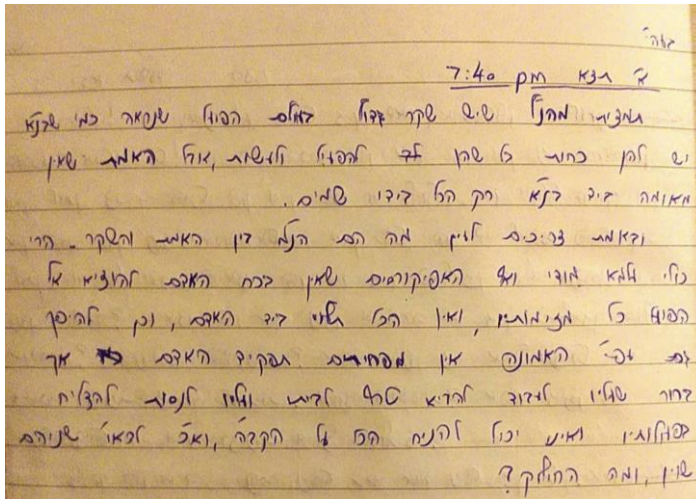 בעה"
א' תצא 7:40 pm
תמצית מהנ"ל שיש שקר גדול בעולם הפועל שנראה כמי שבנ"א
יש להן כחות כל שהן לב להפעיל ולעשות, אבל האמת שאין
מאומה ביד בנ"א רק הכל בידי שמים.
ובאמת צריכים לעיין מה הם הנ"מ בין האמת והשקר. הרי
כולי עלמא מודי ואף האפיקורסים שאין בכח האדם להוציא אל
הפועל כל מזימותיו, ואין הכל תלוי ביד האדם, וכן להיפך
גם עפ"י האמונה אין מפחיתים תפקיד האדם אך
ברור שעליו לעבוד להביא טרף לביתו ועליו לנסות להצליח
בפעולותיו ואינו יכול להניח הכל על הקב"ה, וא"כ לכאו' שניהם
שוין, ומה החילוק?